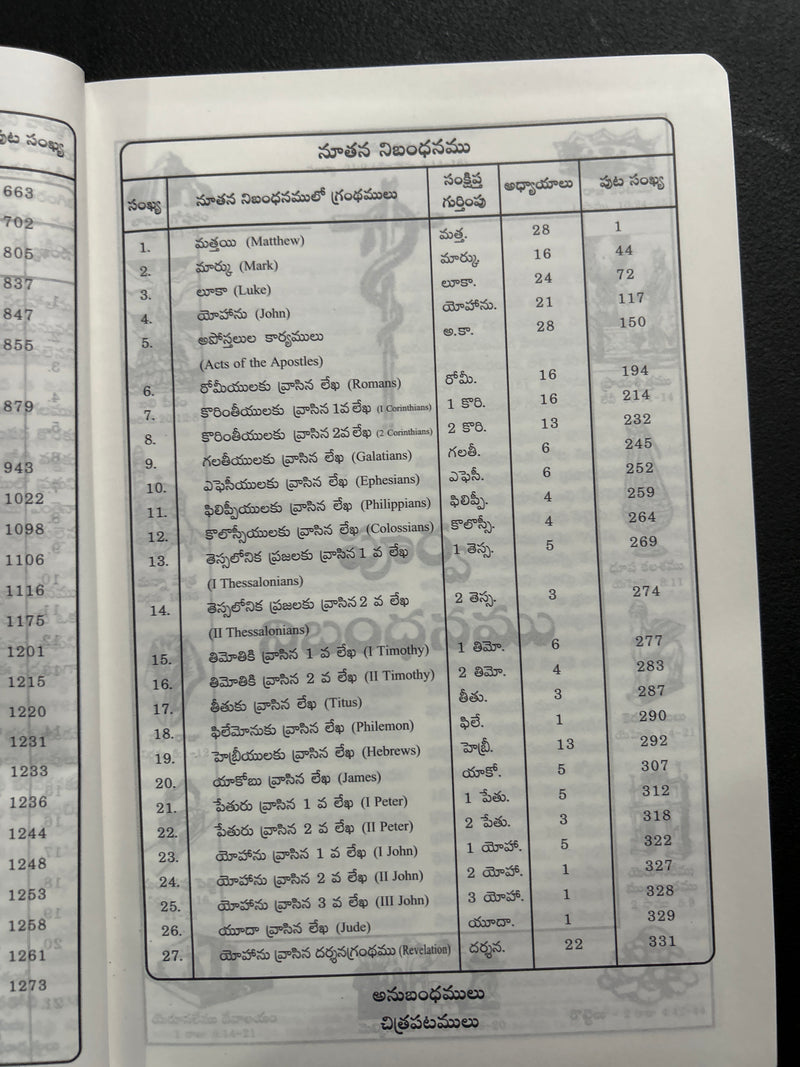 పుట సంఖ్య
663
702
805
837
847
855
879
943
1022
1098
1106
1116
1175
1201
1215
1220
1231
1233
1236
1244
1248
1253
1258
1261
1273
నూతన నిబంధనము
సంఖ్య నూతన నిబంధనములో గ్రంథములు సంక్షిప్త గుర్తింపు అధ్యాయాలు పుట సంఖ్య
1. మత్తయి (Matthew) మత్త. 28 1
2. మార్కు (Mark) మార్కు. 16 44
3. లూకా (Luke) లూకా. 24 72
4. యోహాను (John) యోహాను. 21 117
5. అపోస్తలుల కార్యములు అ.కా. 28 150
(Acts of the Apostles)
6. రోమీయులకు వ్రాసిన లేఖ (Romans) రోమీ. 16 194
7. కొరింతీయులకు వ్రాసిన 1వ లేఖ (I Corinthians) 1 కొరి. 16 214
8. కొరింతీయులకు వ్రాసిన 2వ లేఖ (2 Corinthians) 2 కొరి. 13 232
9. గలతీయులకు వ్రాసిన లేఖ (Galatians) గలతీ. 6 245
10. ఎఫెసీయులకు వ్రాసిన లేఖ (Ephesians) ఎఫెసీ. 6 252
11. ఫిలిప్పీయులకు వ్రాసిన లేఖ (Philippians) ఫిలిప్పీ. 4 259
12. కొలొస్సీయులకు వ్రాసిన లేఖ (Colossians) కొలొస్సీ. 4 264
13. తెస్సలోనిక ప్రజలకు వ్రాసిన 1 వ లేఖ 1 తెస్స. 5 269
(I Thessalonians)
14. తెస్సలోనిక ప్రజలకు వ్రాసిన 2 వ లేఖ 2 తెస్స. 3 274
(II Thessalonians)
15. తిమోతికి వ్రాసిన 1 వ లేఖ (I Timothy) 1 తిమో. 6 277
16. తిమోతికి వ్రాసిన 2 వ లేఖ (II Timothy) 2 తిమో. 4 283
17. తీతుకు వ్రాసిన లేఖ (Titus) తీతు. 3 287
18. ఫిలేమోనుకు వ్రాసిన లేఖ (Philemon) ఫిలే. 1 290
19. హెబ్రీయులకు వ్రాసిన లేఖ (Hebrews) హెబ్రీ. 13 292
20. యాకోబు వ్రాసిన లేఖ (James) యాకో. 5 307
21. పేతురు వ్రాసిన 1 వ లేఖ (I Peter) 1 పేతు. 5 312
22. పేతురు వ్రాసిన 2 వ లేఖ (II Peter) 2 పేతు. 3 318
23. యోహాను వ్రాసిన 1 వ లేఖ (I John) 1 యోహా. 5 322
24. యోహాను వ్రాసిన 2 వ లేఖ (II John) 2 యోహా. 1 327
25. యోహాను వ్రాసిన 3 వ లేఖ (III John) 3 యోహా. 1 328
26. యూదా వ్రాసిన లేఖ (Jude) యూదా. 1 329
27. యోహాను వ్రాసిన దర్శనగ్రంథము (Revelation) దర్శన. 22 331
అనుబంధములు
చిత్రపటములు